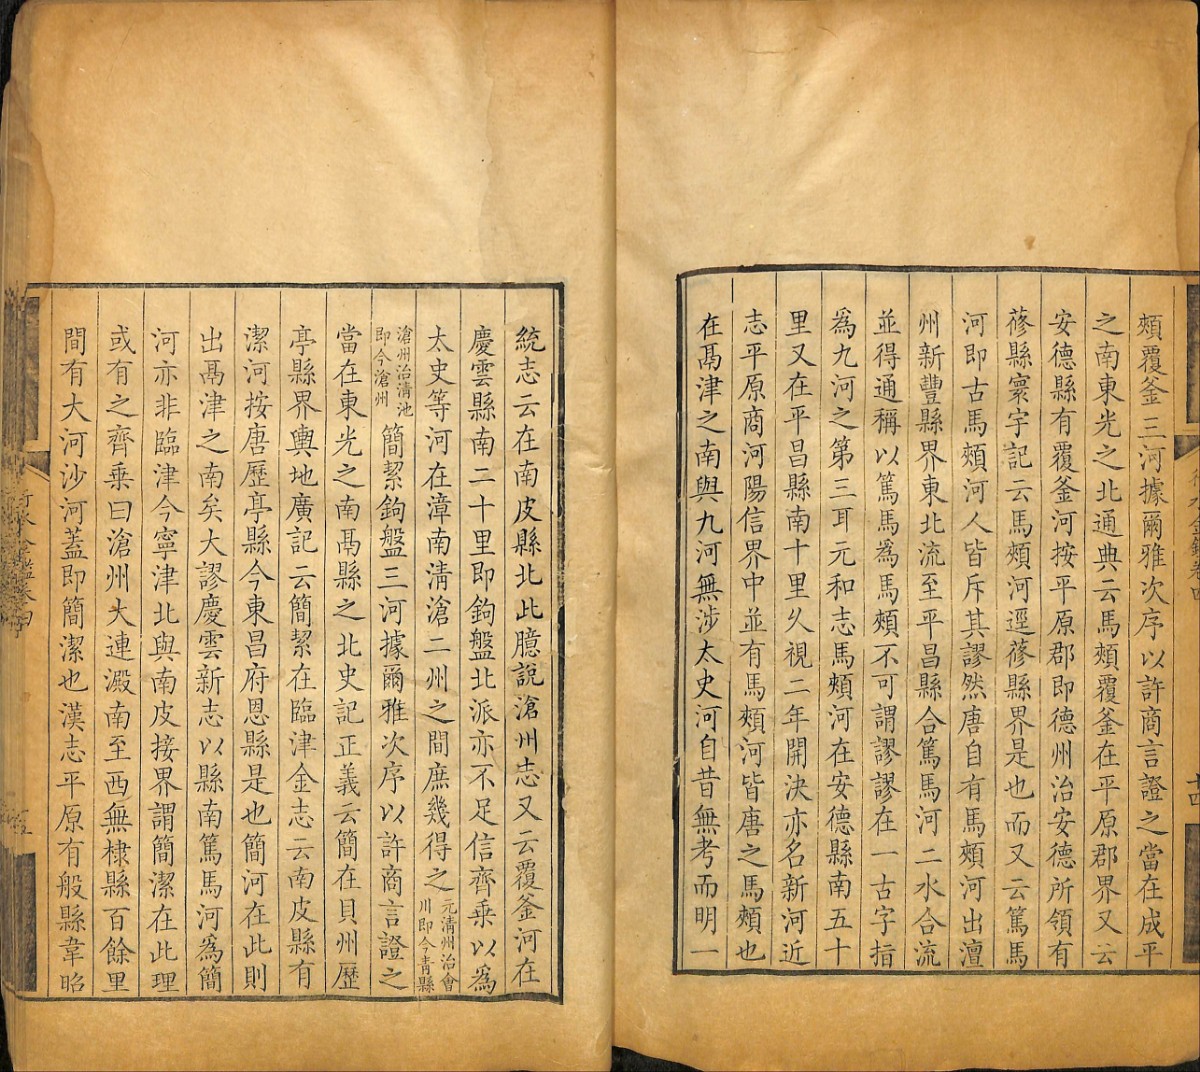 頰覆釜三河據爾雅次序以許商言證之當在成平
之南東光之北通典云馬頰覆釜在平原郡界又云
安德縣有覆釜河按平原郡即德州治安德所領有
蓨縣寰宇記云馬頰河逕蓨縣界是也而又云篤馬
河即古馬頰河人皆斥其謬然唐自有馬頰河出澶
州新豐縣界東北流至平昌縣合篤馬河二水合流
並得通稱以篤馬為馬頰不可謂謬謬在一古字指
為九河之第三耳元和志馬頰河在安德縣南五十
里又在平昌縣南十里久視二年開決亦名新河近
志平原商河陽信界中並有馬頰河皆唐之馬頰也
在鬲津之南與九河無涉太史河自昔無考而明一
統志云在南皮縣北此臆說滄州志又云覆釜河在
慶雲縣南二十里即鉤盤北派亦不足信齊乗以為
太史等河在漳南清滄二州之間庶幾得之元清州治會川即今青縣
滄州治清池即今滄州簡絜鉤盤三河據爾雅次序以許商言證之
當在東光之南鬲縣之北史記正義云簡在貝州歷
亭縣界輿地廣記云簡絜在臨津金志云南皮縣有
潔河按唐歷亭縣今東昌府恩縣是也簡河在此則
出鬲津之南矣大謬慶雲新志以縣南篤馬河為簡
河亦非臨津今寧津北與南皮接界謂簡潔在此理
或有之齊乗曰滄州大連澱南至西無棣縣百餘里
間有大河沙河蓋即簡潔也漢志平原有般縣韋昭